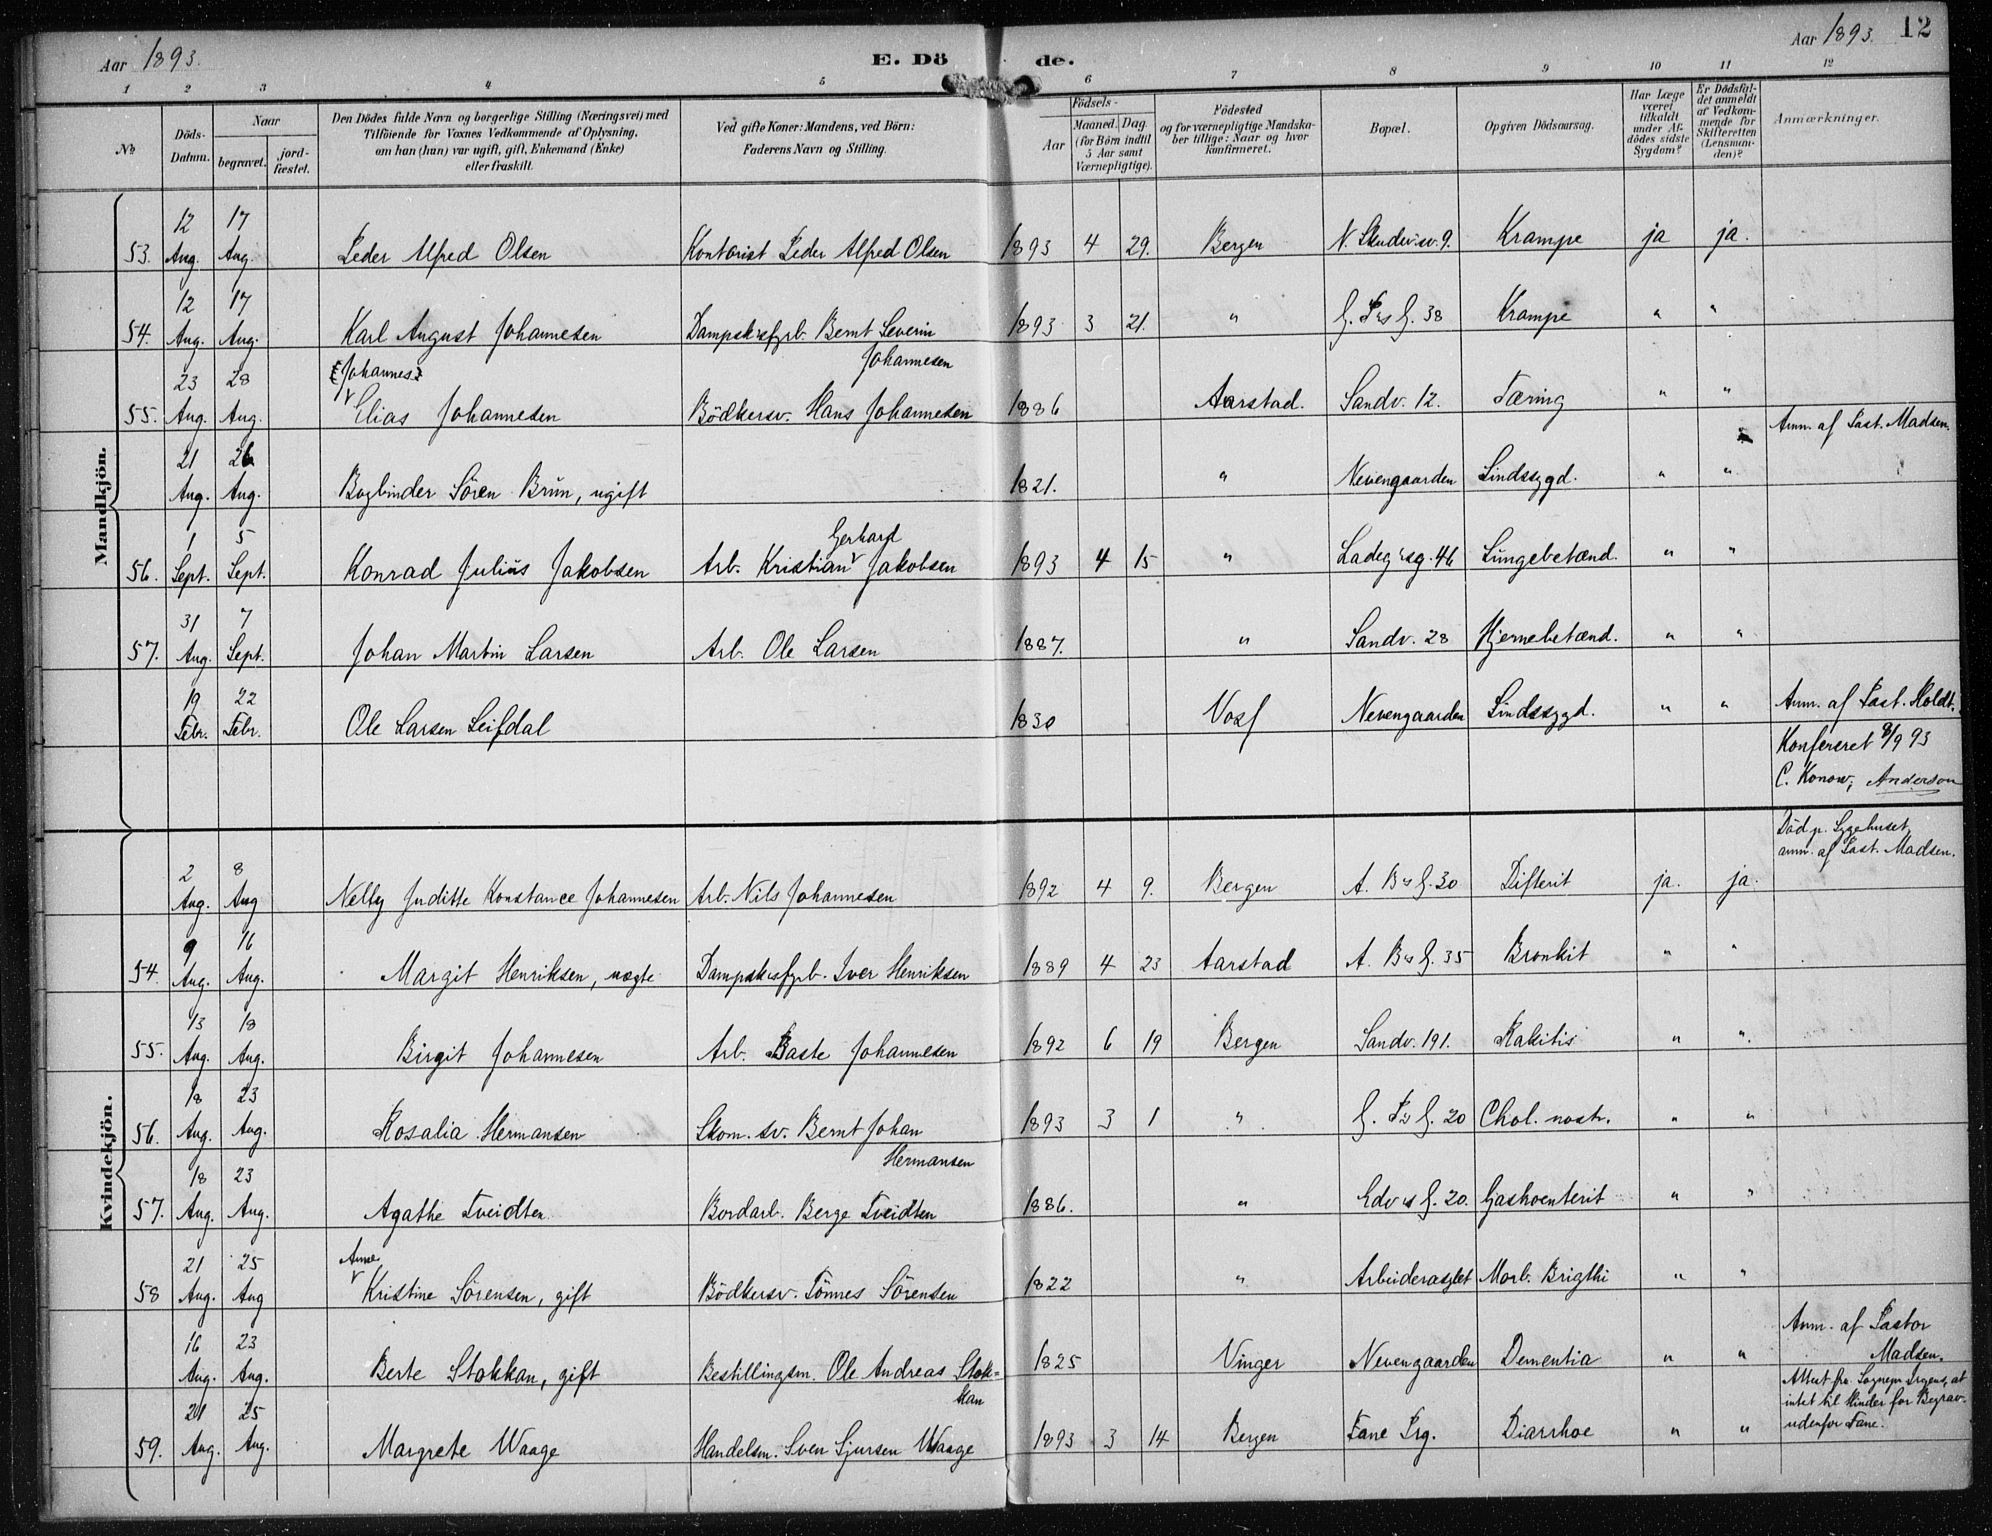 Aar 1893.
E. Döde.
Aar 1893. 12
1 2 3 4 5 6 7 8 9 10 11 12
No
Döds-Datum.
Naar
begravet.
jord-fæstet.
Den Dödes fulde Navn og borgerlige Stilling (Næringsvei) med
Tilföiende for Voxnes Vedkommende af Oplysning,
om han (hun) var ugift, gift, Enkemand (Enke)
eller fraskilt.
Ved gifte Koner: Mandens, ved Börn:
Faderens Navn og Stilling.
Födsels-
Aar
Maaned. Dag.
(for Börn indtil
5 Aar samt
Værnepligtige).
Födested
og for værnepligtige Mandska-
ber tillige: Naar og hvor
konfirmeret.
Bopæl.
Opgiven Dödsaarsag.
Har Læge
været
tilkaldt
under Af-
dödes sidste
Sygdom?
Er Dödsfal-
det anmeldt
af Vedkom-
mende for
Skifteretten
(Lensman-
den)?
Anmærkninger.
Mandkjön.
53. 12 Aug. 17 Aug. Peder Alfred Olsen Kontorist Peder Alfred Olsen 1893 4 29. Bergen N. Skudev.sv. 9. Krampe ja ja.
54. 12 Aug. 17 Aug. Karl August Johannesen Dampsk.sfyrb. Bernt Severin Johannesen 1893 3 21. " G. P.s G. 38 Krampe " "
55. 23 Aug. 28 Aug. [Johannes] Elias Johannesen Bödkersv. Hans Johannesen 1886 Aarstad. Sandv. 12. Tæring " "
21 Aug. 26 Aug. Bogbinder Sören Brun, ugift 1821. " Nevengaarden Sindssygd. " " Anm. af Past. Madsen.
56. 1 Sept. 5 Sept. Konrad Julius Jakobsen Arb. Kristian Gerhard Jakobsen 1893 4 15 " Ladeg.sg. 46 Lungebetænd. " "
57. 31 Aug. 7 Sept. Johan Martin Larsen Arb. Ole Larsen 1887. " Sandv. 28 Hjernebetænd. " "
19 Febr. 22 Febr. Ole Larsen Seifdal 1830 Voss Nevengaarden Sindssygd. " " Anm. af Past. Holdt.
Konfereret 8/9 93
C. Konow, Anderson
Kvindekjön.
2 Aug. 8 Aug Nelly Juditte Konstance Johannesen Arb. Nils Johannesen 1892 4 9. Bergen A. B.s G. 30 Difterit ja. ja. Död p. Sygehuset, anm. af Past. Madsen.
54. 9 Aug. 16 Aug. Margit Henriksen, uægte Dampsk.sfyrb. Iver Henriksen 1889 4 23 Aarstad A. B.s G. 35 Bronkit " "
55. 13 Aug. 18 Aug. Birgit Johannesen Arb. Baste Johannesen 1892 6 19 Bergen Sandv. 191. Rakitis " ".
56. 18 Aug. 23 Aug. Rosalia Hermansen Skom.sv. Bernt Johan Hermansen 1893 3 1 " G. P.s G. 20 Chol. nostr. " "
57. 18 Aug. 23 Aug. Agathe Tveidten Bordarb. Berge Tveidten 1886. " Edv.s G. 20. Gastroenterit " "
58 21 Aug. 25 Aug Anne Kristine Sörensen, gift Bödkersv. Tönnes Sörensen 1822 " Arbeiderasylet Morb. Brigthi " "
16 Aug. 23 Aug. Berte Stokkan, gift Bestillingsm. Ole Andreas Stokkan 1825 Vinger Nevengaarden Dementia " " Anm. af Pastor Madsen.
59. 21 Aug. 25 Aug. Margrete Waage Handelsm. Sven Sjursen Waage 1893 3 14 Bergen Fane Prg. Diarrhoe " " Attest fra Sognepr. Irgens, at
intet til Hinder for Begrav.
udenfor Fane.